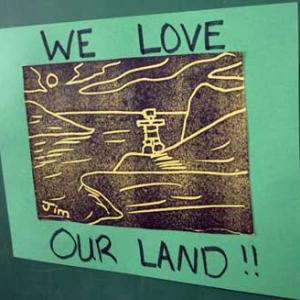 WE LOVE
Jim
OUR LAND!!